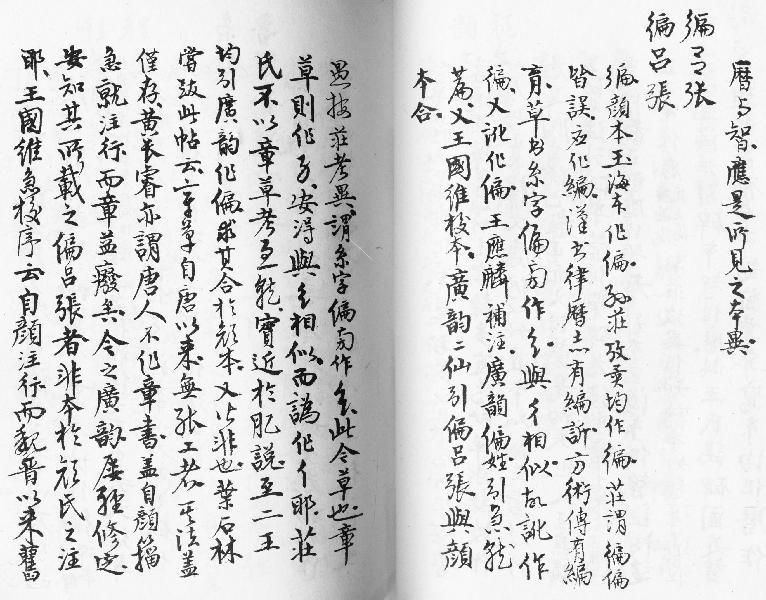 曆与智應是所見之本異
編呂張
編呂張
編顏本玉海本作偏孫莊攷異均作編莊謂編偏
皆誤應作編漢書律曆志有編訢方術傳有編
育草书糸字偏旁作 與 相似故訛作
徧又訛作偏王應麟補注廣韵偏姓引急就
篇又王國維校本廣韵二仙引偏呂張與顏
本合
愚按莊考異謂糸字偏旁作 此今草也章
草則作 安得與 相似而譌作亻耶莊
氏不以章草考急就實近於肊說至二王
均引廣韵作偏求其合於顏本又皆非也葉石林
嘗跋此帖云章草自唐以來無張工者其法蓋
僅存黄長睿亦謂唐人不作章書盖自顏籀
急就注行而章益廢矣今之廣韵屡經修定
安知其所載之偏呂張者非本於顏氏之注
耶王國維急校序云自顏注行而魏晋以來舊